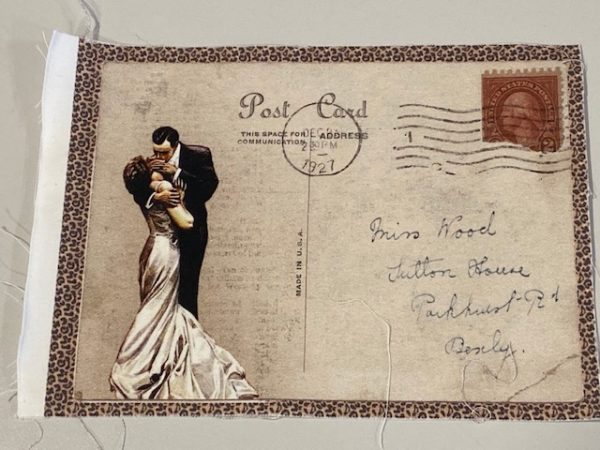 Post Card
THIS SPACE FOR COMMUNICATION
ADDRESS
DEC
PM
1927
UNITED STATES POSTAGE
MADE IN U.S.A.
Miss Wood
Sutton House
Parkhurst Rd
Bexly.